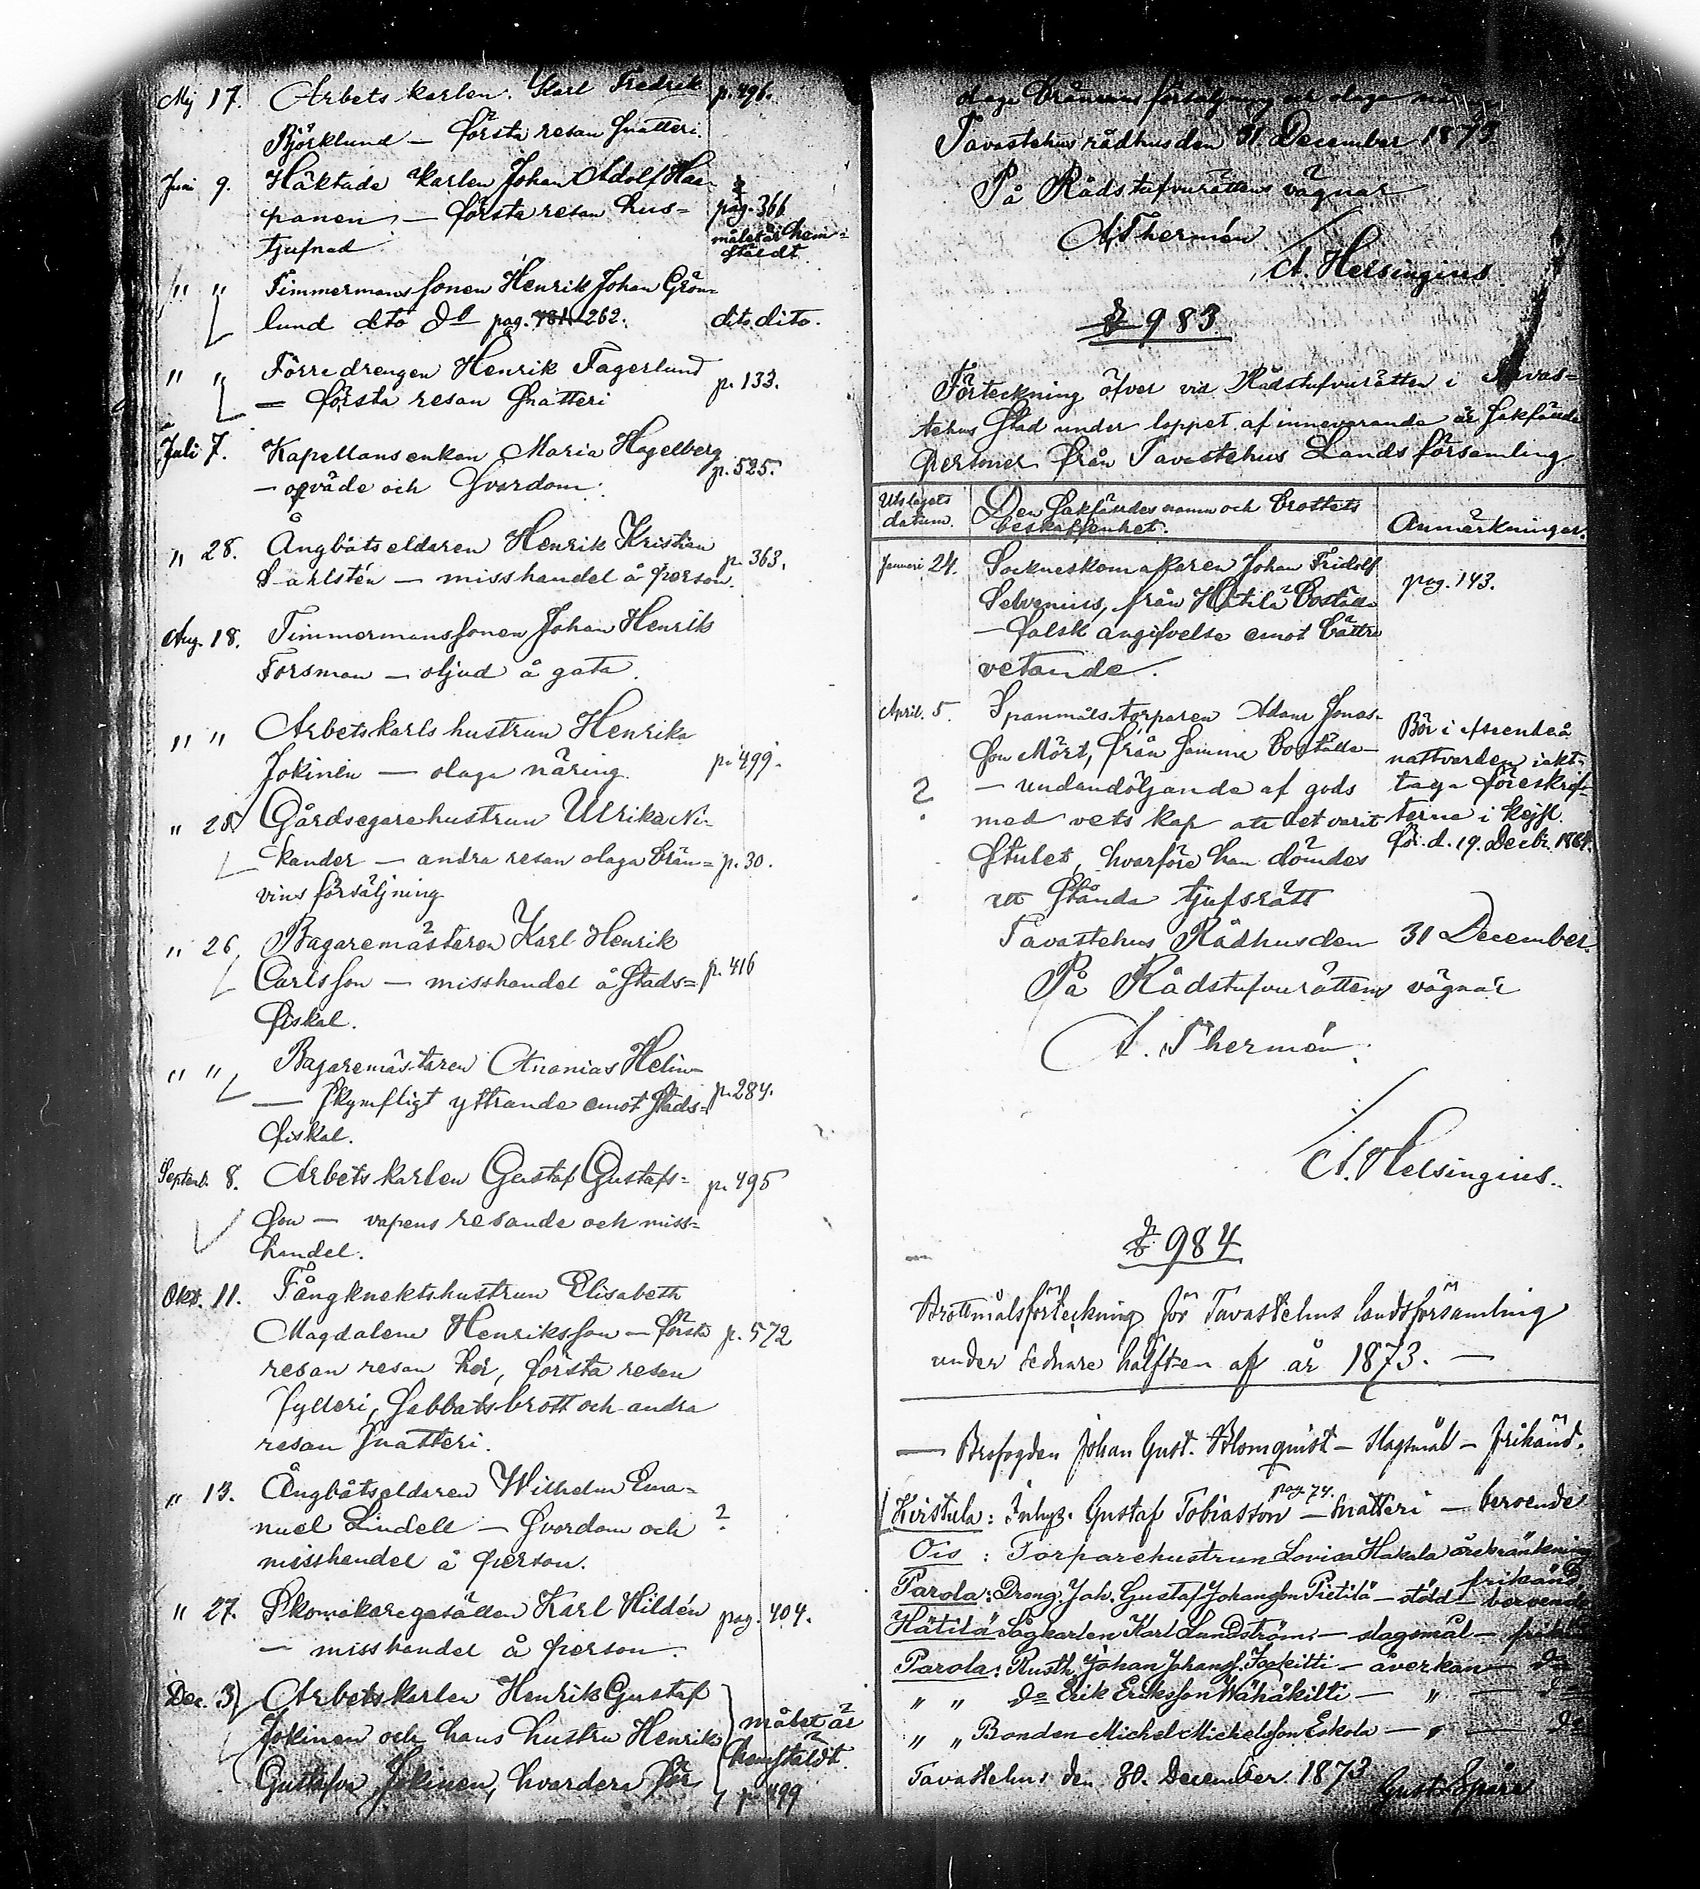 Maj 17. Arbetskarlen Karl Fredrik p. 496.
Björklund — första resan snatteri
Juni 9. Häktade karlen Johan Adolf Haa-
panen — första resan hus= pag. 366
tjufnad målet är hem=
stäldt
" " Timmermanssonen Henrik Johan Grön-
lund dito do pag. 262. dito dito.
" " Förre drengen Henrik Fagerlund
— första resan snatteri p. 133.
Juli 7. Kapellansenkan Maria Hagelberg
— oqväde och svordom. p. 525.
" 28. Ångbåtseldaren Henrik Kristian
Sarlstén — misshandel å person. p. 363.
Aug. 18. Timmermanssonen Johan Henrik
Forsman — oljud å gata.
" " Arbetskarlshustrun Henrika
Jokinen — olaga näring. p. 499.
" 28. Gårdsegarehustrun Ulrika Ni-
kander — andra resan olaga brän= p. 30.
vins försäljning
" 26. Bagaremästaren Karl Henrik
Carlsson — misshandel å Stads= p. 416
fiskal.
" " Bagaremästaren Ananias Helin
— skymfligt yttrande emot Stads= p. 284.
fiskal.
Septemb. 8. Arbetskarlen Gustaf Gustafs= p. 495
son — vapens resande och miss=
handel.
Okt. 11. Fångknektshustrun Elisabeth
Magdalena Henriksson — första p. 572
resan resan hor, första resan
fylleri, sabbatsbrott och andra
resan snatteri.
" 13. Ångbåtseldaren Wilhelm Ema=
nuel Lindell — svordom och ?
misshandel å person.
" 27. Skomakaregesällen Karl Hildén pag. 404.
— misshandel å person.
Dec. 3 Arbetskarlen Henrik Gustaf
Jokinen och hans hustru Henrika målet är
hemstäldt.
Gustafva Jokinen, hvardera för p. 499
olaga bränvins försäljning och olaga
Tavastehus rådhus den 31 December 1873.
På Rådstufvurättens vägnar
A Thermén
A. Helsingius
§ 983
Förteckning öfver vid Rådstufvurätten i Tavas=
tehus Stad under loppet af innevarande år sakfälde
personer från Tavastehus Landsförsamling
Utslagets
datum. Den sakfäldes namn och brottets
beskaffenhet. Anmärkningar.
Januari 24. Sockneskomakaren Johan Fridolf
Selvenius, från Hätilä Boställe pag. 143.
— falsk angifvelse emot bättre
vetande.
April. 5. Spanmålstorparen Adam Jonas-
son Mört, från samma boställe — Bör i afseende å
nattvarden iakt-
? — undandöljande af gods taga föreskrif-
med vetskap att det varit terna i kejsl.
stulet, hvarföre han dömdes för. d. 19. Decbr. 1864.
att stånda tjufsrätt
Tavastehus Rådhus den 31 December.
På Rådstufvurättens vägnar
A. Thermén.
A. Helsingius.
§ 984
Brottmålsförteckning för Tavastehus landsförsamling
under sednare hälften af år 1873. —
— Brofogden Johan Gust. Blomqvist — slagsmål — frikänd.
pag. 74.
Kirstula: Inhys. Gustaf Tobiasson — snatteri — beroende
Ois : Torparehustrun Lovisa Hakala ärekränkning
frikänd
Parola: Dreng. Joh. Gustaf Johansson Pietilä — stöld — beroende
Hätilä Sågkarlen Karl Lundström — slagsmål —
Parola: Rusth. Johan Johanss. Jockitti — åverkan — do
" " do Erik Eriksson Wähäkilti — " — do
" " Bonden Michel Michelsson Eskola — " — do
Tavastehus den 30. December 1873